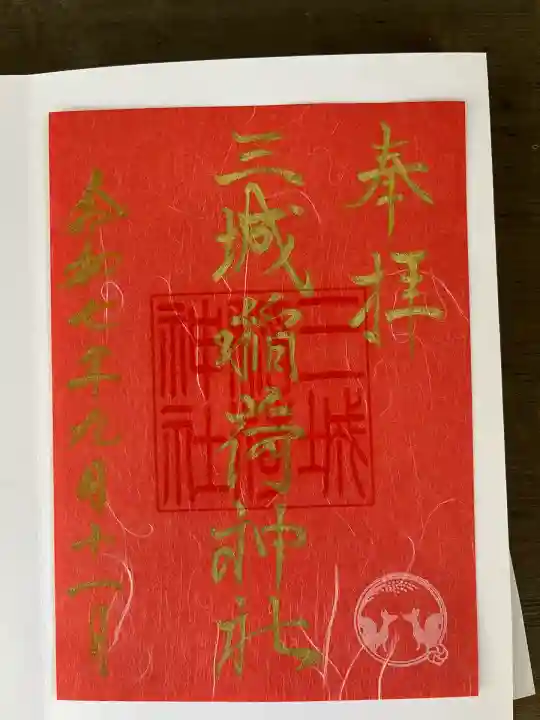 奉拝
三城稲荷神社
三城稲荷神社
令和七年九月十一日